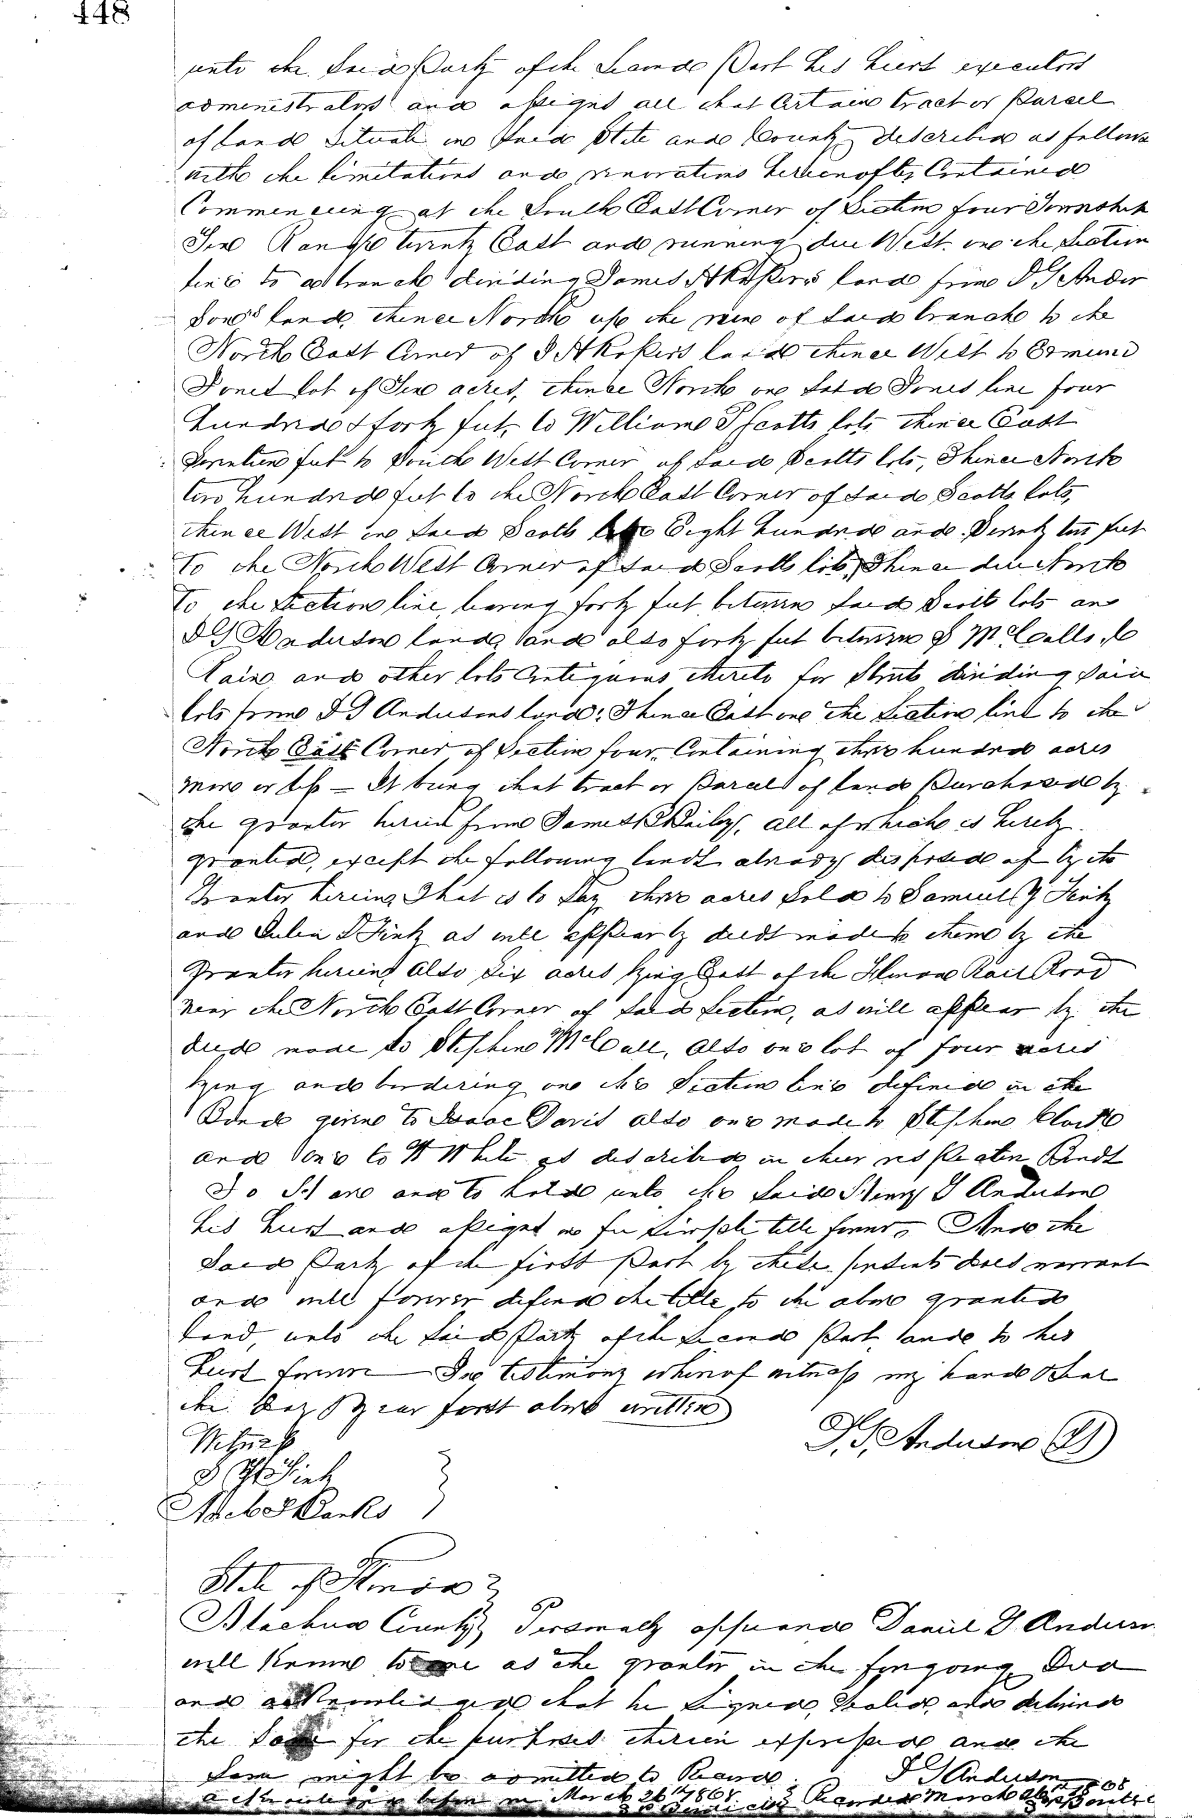 448
unto the Said Party of the Second Part his heirs executors
administrators and assigns all that Certain tract or Parcel
of land Situate in Said State and County described as follows
with the limitations and renovations hereinafter Contained
Commencing at the South East Corner of Section four Township
Ten Range twenty East and running due West on the Section
line to a branch dividing James H Ropers land from D G Ander
Sons land, thence North up the run of Said branch to the
North East Corner of J H Ropers land thence West to Edmund
Jones lot of Ten acres, thence North on Said Jones line four
hundred & forty feet, to William P Scotts lots thence East
Seventeen feet to South West Corner of Said Scotts lots, Thence North
two hundred feet to the North East Corner of Said Scotts lots,
thence West on Said Scotts Eight hundred and Seventy feet
To the North West Corner of Said Scotts lots, Thence due North
To the Section line leaving forty feet between Said Scotts lots and
D G Anderson land, and also forty feet between S McCalls
and other lots Contiguous thereto for Streets dividing Said
lots from D G Andersons land; Thence East on the Section line to the
North East Corner of Section four, Containing three hundred acres
more or less – It being that tract or Parcel of land Purchased by
the grantor herein from James B Bailey, all of which is hereby
granted, except the following lands already disposed of by the
Grantor herein, That is to Say three acres Sold to Samuel Y Finley
and Julia D Finley as will appear by deeds made to them by the
Grantor herein, Also Six acres lying East of the Florida Rail Road
near the North East Corner of Said Section, as will appear by the
deed made to Stephen McCall, Also one lot of four acres
lying and bordering on the Section line defined in the
Bond given to Isaac Davis also one made to Stephen Clark
and one to W White as described in their respective Bonds
To Have and to hold unto the Said Henry G Anderson
his heirs and assigns in fee Simple title forever, And the
Said Party of the first Part by these presents does warrant
and will forever defend the title to the above granted
land, unto the Said Party of the Second Part, and to his
heirs forever — In testimony whereof witness my hand & Seal
the Day & year first above written
D. G. Anderson
Witness
Banks
State of Florida
Alachua County Personally appeared Daniel G Anderson
well Known to me as the grantor in the foregoing Deed
and acknowledged that he Signed, Sealed, and delivered
the Same for the purposes therein expressed and the
Same might be admitted to Record
D G Anderson
before me March 26th 1868
Recorded March